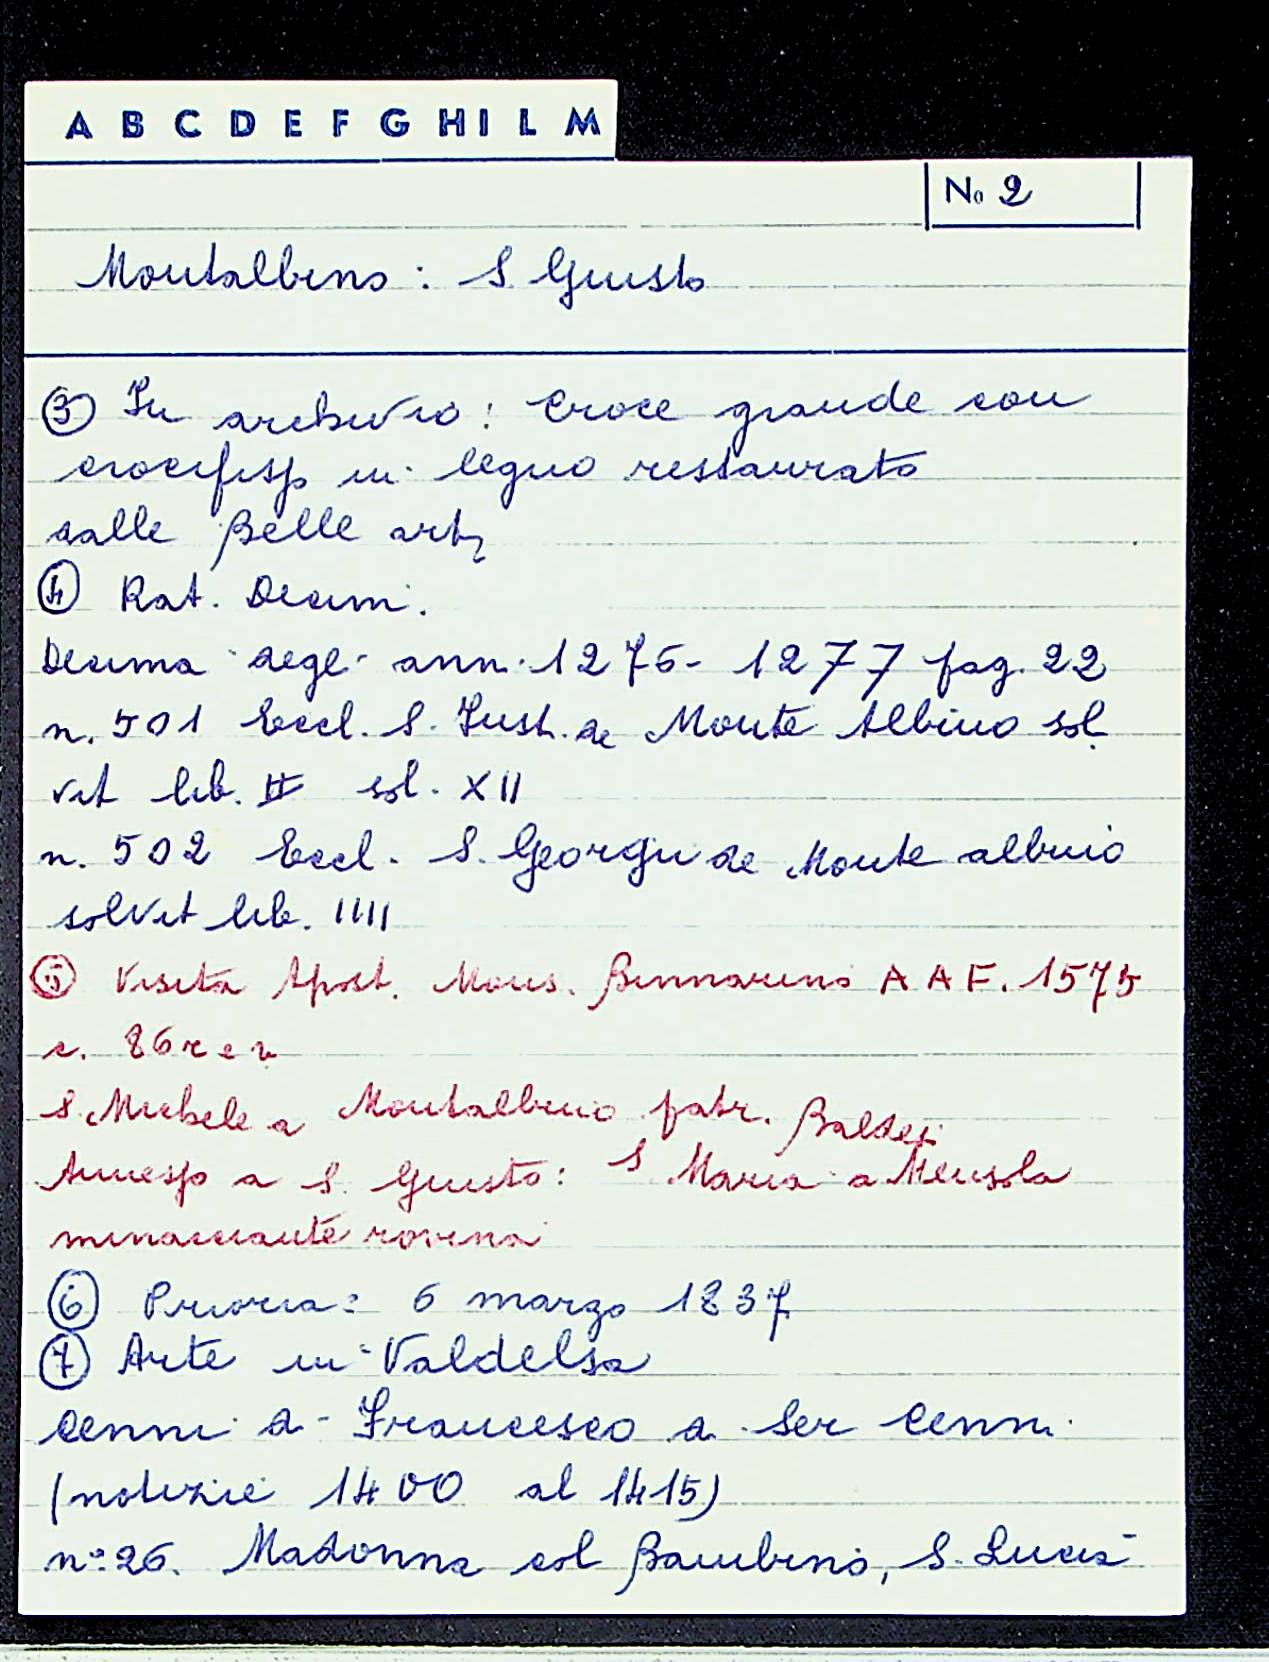 A B C D E F G H I L M
No 2
Montalbino : S Giusto
③ In archivio : Croce grande con
crocifisso in legno restaurato
dalle Belle arti
④ Rat. Decim.
Decima degl. ann. 1276 - 1277 pag. 22
n. 501 Eccl. S. Iust. de Monte Albino sol
vit lib. II sol. XII
n. 502 Eccl. S. Georgii de Monte albino
solvit lib. IIII
⑤ Visita Apost. Mons. A A F. 1575
c. 86 r e v
S. Michele a Montalbino patr. Baldesi
Annesso a S. Giusto : S Maria a Mensola
minacciante rovina
⑥ Prioria : 6 marzo 1837
⑦ Arte in Valdelsa
Cenni di Francesco di Ser Cenni
(notizie 1400 al 1415)
n° 26. Madonna col Bambino, S. Lucia